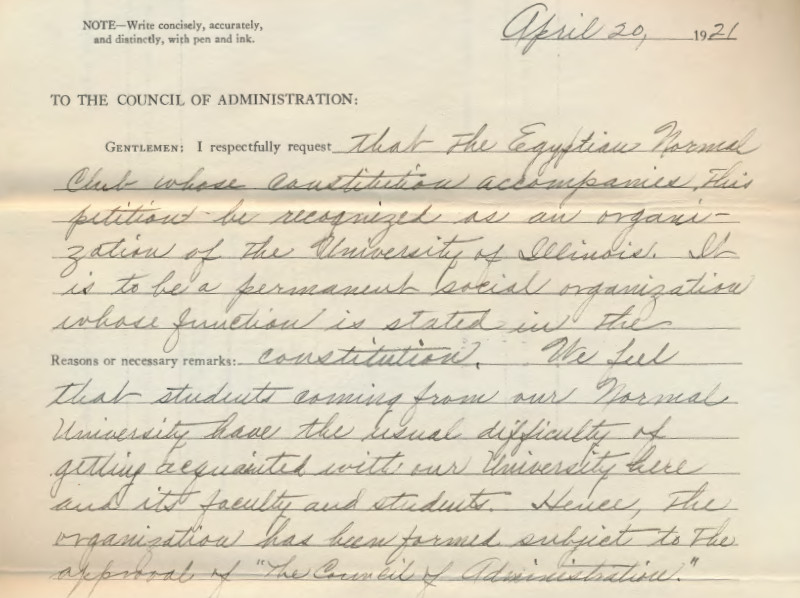 NOTE—Write concisely, accurately,
and distinctly, with pen and ink.
April 20, 1921
TO THE COUNCIL OF ADMINISTRATION:
GENTLEMEN: I respectfully request that the Egyptian Normal
Club whose constitution accompanies this
petition be recognized as an organi-
zation of the University of Illinois. It
is to be a permanent social organization
whose function is stated in the
Reasons or necessary remarks: constitution. We feel
that students coming from our Normal
University have the usual difficulty of
getting acquainted with our University here
and its faculty and students. Hence, the
organization has been formed subject to the
approval of "The Council of Administration."